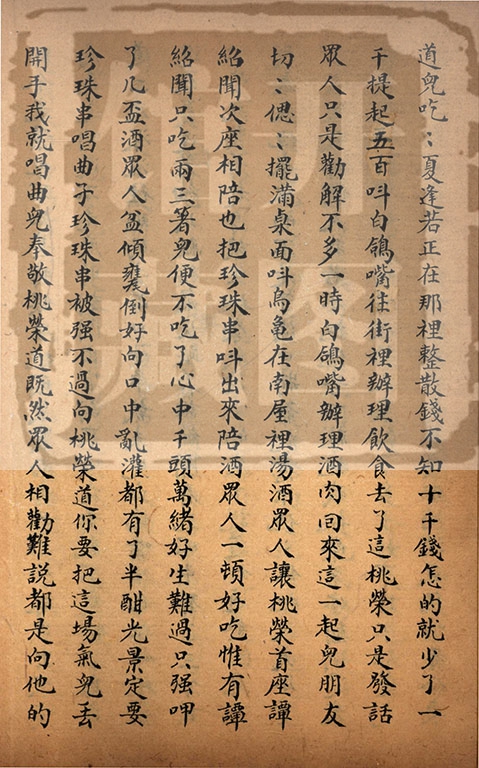 道兒吃〻夏逢若正在那裡整散錢不知十千錢怎的就少了一
千提起五百呌白鴿嘴往街裡辦理飲食去了這桃榮只是發話
眾人只是勸解不多一時白鴿嘴辦理酒肉囘來這一起兒朋友
切〻偲〻擺滿桌面呌烏龜在南屋裡湯酒眾人讓桃榮首座譚
紹聞次座相陪也把珍珠串呌出來陪酒眾人一頓好吃惟有譚
紹聞只吃兩三箸兒便不吃了心中千頭萬緒好生難過只强呷
了几盃酒眾人盆傾甕倒好向口中亂灌都有了半酣光景定要
珍珠串唱曲子珍珠串被强不過向桃榮道你要把這場氣兒丢
開手我就唱曲兒奉敬桃榮道既然眾人相勸難説都是向他的